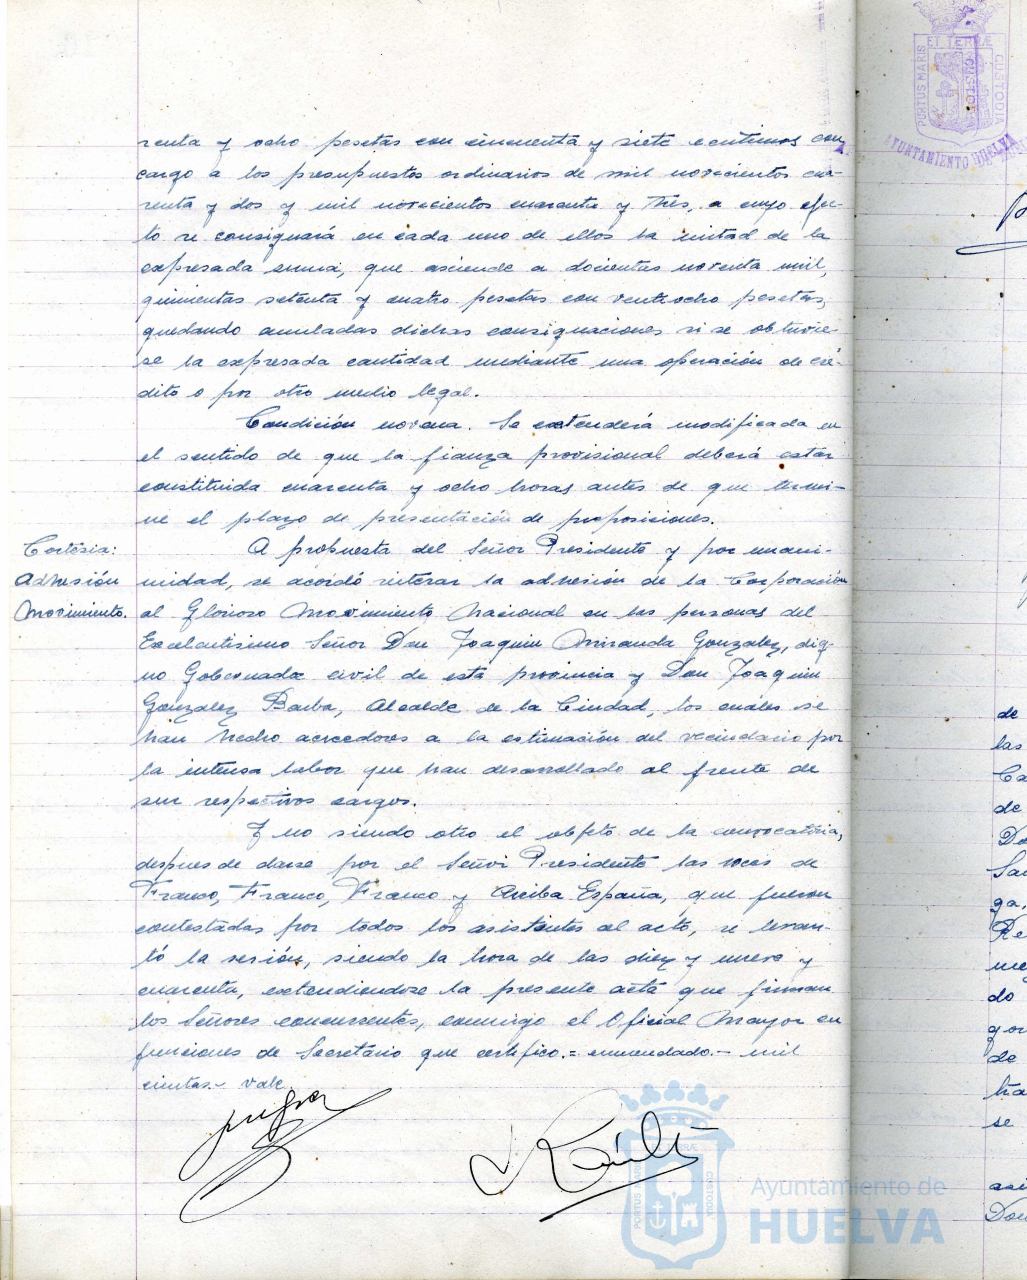 renta y ocho pesetas con cincuenta y siete centimos con
cargo a los presupuestos ordinarios de mil novecientos cua-
renta y dos y mil novecientos cuarenta y tres, a cuyo efec-
to se consignará en cada uno de ellos la mitad de la
expresada suma, que asciende a docientas noventa mil,
quinientas setenta y cuatro pesetas con ventiocho pesetas,
quedando anuladas dichas consignaciones si se obtuvie-
se la expresada cantidad mediante una operación de cré-
dito o por otro medio legal.
Condición novena. Se extenderá modificada en
el sentido de que la fianza provisional deberá estar
constituida cuarenta y ocho horas antes de que termi-
ne el plazo de presentación de proposiciones.
Cortesia:
Adhesión
Movimiento.
A propuesta del Señor Presidente y por unani-
midad, se acordó reiterar la adhesión de la Corporación
al Glorioso Movimiento Nacional en las personas del
Excelentisimo Señor Don Joaquin Miranda Gonzalez, dig-
no Gobernador civil de esta provincia y Don Joaquin
Gonzalez Barba, Alcalde de la Ciudad, los cuales se
han hecho acreedores a la estimación del vecindario por
la intensa labor que han desarrollado al frente de
sus respectivos cargos.
Y no siendo otro el objeto de la convocatoria,
despues de darse por el Señor Presidente las voces de
Franco, Franco, Franco y Arriba España, que fueron
contestadas por todos los asistentes al acto, se levan-
tó la sesión, siendo la hora de las diez y nueve y
cuarenta, extendiendose la presente acta que firman
los Señores concurrentes, conmigo el Oficial Mayor en
funciones de Secretario que certifico.= enmendado.- mil
cientas.- vale
PORTUS MARIS ET TERRÆ CUSTODIA
AYUNTAMIENTO HUELVA
de
las
Ca
de
Do
Sa
ga,
Re
me
do
gor
de
ha
se
asi
Don
Ayuntamiento de
HUELVA